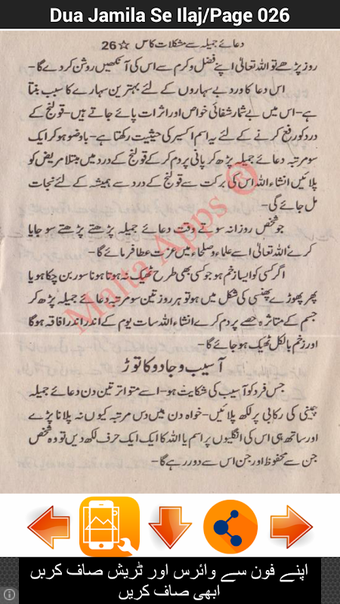 Dua Jamila Se Ilaj/Page 026
دعائے جمیلہ سے مشکلات کا حل ☆ 26
روز پڑھے تو اللہ تعالیٰ اپنے فضل و کرم سے اس کی آنکھیں روشن کر دے گا۔
اس دعا کا ورد بے سہاروں کے لئے بہترین سہارے کا سبب بنتا
ہے۔ اس میں بے شمار شفائی خواص اور اثرات پائے جاتے ہیں۔ قولنج کے
درد کو رفع کرنے کے لئے یہ اسم اکسیر کی حیثیت رکھتا ہے۔ باوضو ہو کر ایک
سو مرتبہ دعائے جمیلہ پڑھ کر پانی پر دم کر کے قولنج کے درد میں مبتلا مریض کو
پلائیں انشاء اللہ اس کی برکت سے قولنج کے درد سے ہمیشہ کے لئے نجات
مل جائے گی۔
جو شخص روزانہ سوتے وقت دعائے جمیلہ پڑھتے پڑھتے سو جایا
کرے اللہ تعالیٰ اسے علماء و صلحاء میں عزت عطا فرمائے گا۔
اگر کسی کو ایسا زخم ہو جو کسی بھی طرح ٹھیک نہ ہوتا ہو ناسور بن چکا ہو یا
پھر پھوڑے پھنسی کی شکل میں ہو تو ہر روز تین سو مرتبہ دعائے جمیلہ پڑھ کر
جسم کے متاثرہ حصے پر دم کرے انشاء اللہ سات یوم کے اندر اندر افاقہ ہوگا
اور زخم بالکل ٹھیک ہو جائے گا۔
آسیب و جادو کا توڑ
جس فرد کو آسیب کی شکایت ہو۔ اسے متواتر تین دن دعائے جمیلہ
چینی کی رکابی پر لکھ پلائیں۔ خواہ دن میں دس مرتبہ کیوں نہ پلانا پڑے
اور ساتھ ہی اس کی انگلیوں پر اسم یا اللہ کا ایک ایک حرف لکھ دیں تو وہ شخص
جن سے محفوظ اور جن اس سے دور رہے گا۔
Malta Apps ©
اپنے فون سے وائرس اور ٹریش صاف کریں
ابھی صاف کریں